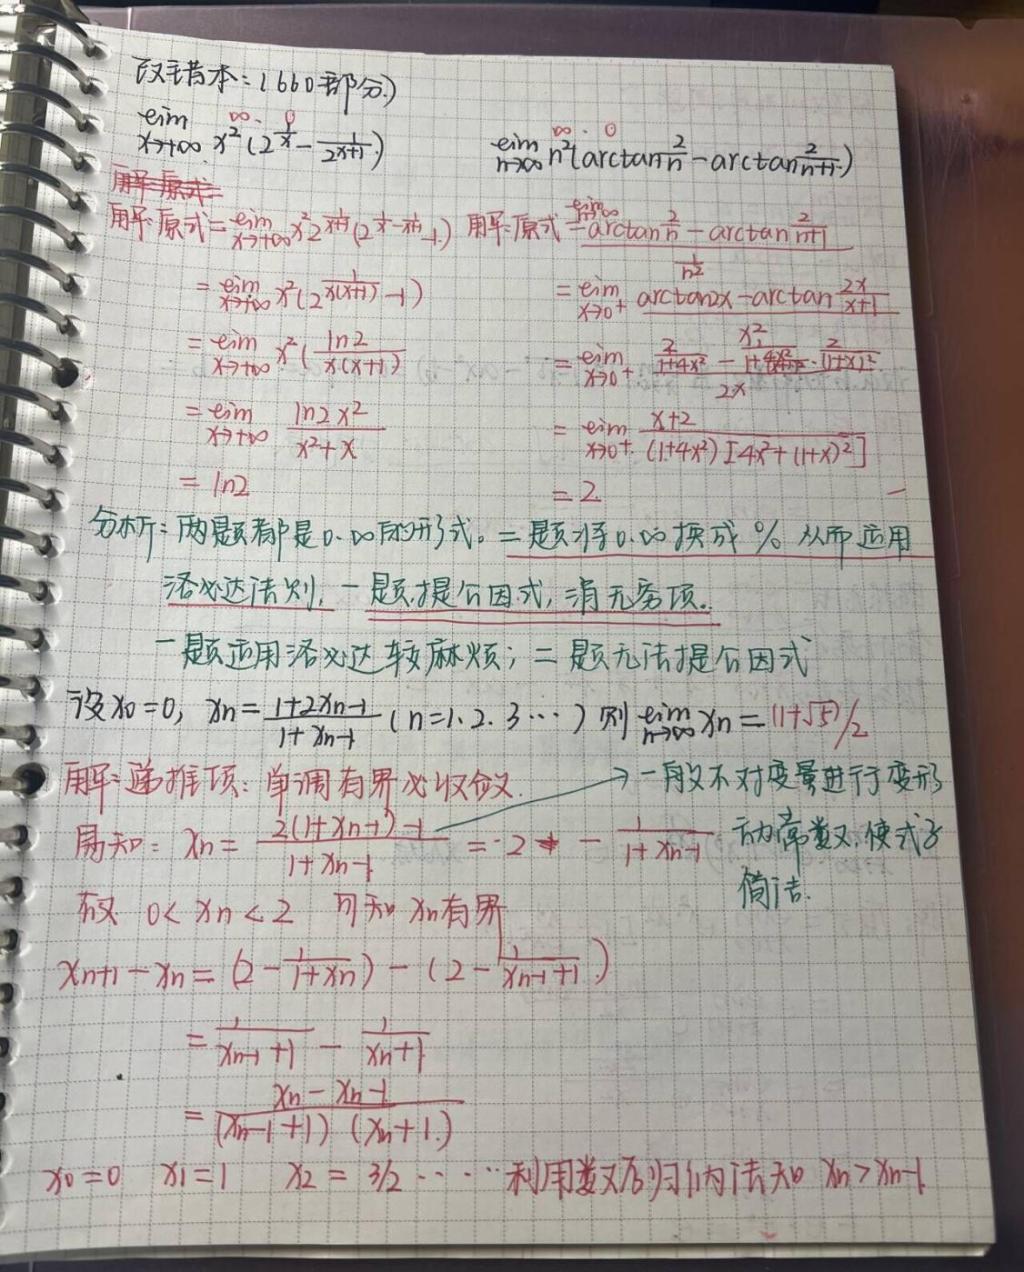 改错本:(660部分)
lim x→+∞ x²(2^(1/x) - 1/2^(x+1)) ∞·0
lim n→∞ n²(arctan 2/n - arctan 2/(n+1)) ∞·0
解:原式=lim x→+∞ x² 2^(1/(x+1)) (2^(1/x - 1/(x+1)) - 1)
= lim x→+∞ x²(2^(1/(x(x+1))) - 1)
= lim x→+∞ x²(ln2/(x(x+1)))
= lim x→+∞ ln2 x²/(x²+x)
= ln2
解:原式=lim n→∞ (arctan 2/n - arctan 2/(n+1))/(1/n²)
= lim x→0⁺ (arctan2x - arctan 2x/(x+1))/x²
= lim x→0⁺
= lim x→0⁺ (x+2)/((1+4x²)[4x²+(1+x)²])
= 2
分析:两题都是0·∞的形式。二题将0·∞换成 0/0 从而应用
洛必达法则,一题提公因式,消无穷项.
一题应用洛必达较麻烦;二题无法提公因式
设x₀=0, xn=(1+2xn-1)/(1+xn-1) (n=1.2.3…) 则 lim n→∞ xn=(1+√5)/2
解:递推项:单调有界必收敛.
→一般不对变量进行变形
易知: xn= (2(1+xn-1)-1)/(1+xn-1) = 2 - 1/(1+xn-1)
常数,使式子
简洁.
故 0<xn<2 可知 xn有界
xn+1-xn=(2-1/(1+xn))-(2-1/(xn-1+1))
= 1/(xn-1+1) - 1/(xn+1)
= (xn-xn-1)/((xn-1+1)(xn+1))
x₀=0 x₁=1 x₂=3/2 ……利用数学归纳法知 xn>xn-1